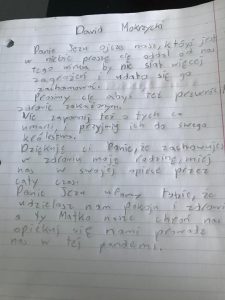 Dawid Mokrzycki
Panie Jezu Ojcze nasz, który jest
w niebie proszę cię oddal od nas
tego wirusa by nie siał więcej
zagrożeń i udało się go
zachamować.
Prosimy cię abyś też przywrócił
zdrowie zakażonym.
Nie zapomnij też o tych co
umarli, i przyjmij ich do swego
królestwa.
Dziękuję ci Panie, że zachowujesz
w zdrowiu moją rodzinę, miej
nas w swojej opiece przez
cały czas.
Panie Jezu ufamy tobie, że
udzielasz nam pokoju i zdrowia
a ty Matko nasza chroń nas
opiekuj się nami prowadź
nas w tej pandemi.